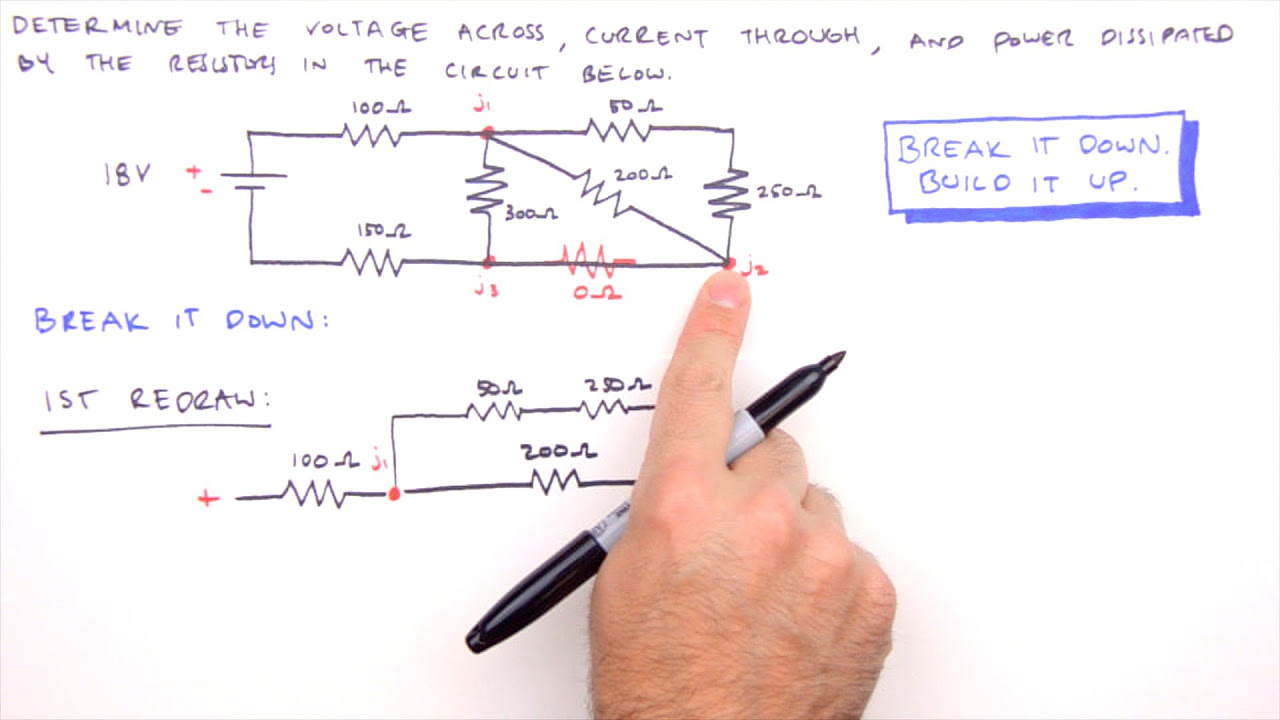 DETERMINE THE VOLTAGE ACROSS, CURRENT THROUGH, AND POWER DISSIPATED
BY THE RESISTORS IN THE CIRCUIT BELOW.
100Ω
j1
50Ω
18V
+
-
200Ω
250Ω
300Ω
150Ω
j3
0Ω
j2
BREAK IT DOWN.
BUILD IT UP.
BREAK IT DOWN:
1ST REDRAW:
50Ω
250Ω
100Ω
j1
200Ω
+